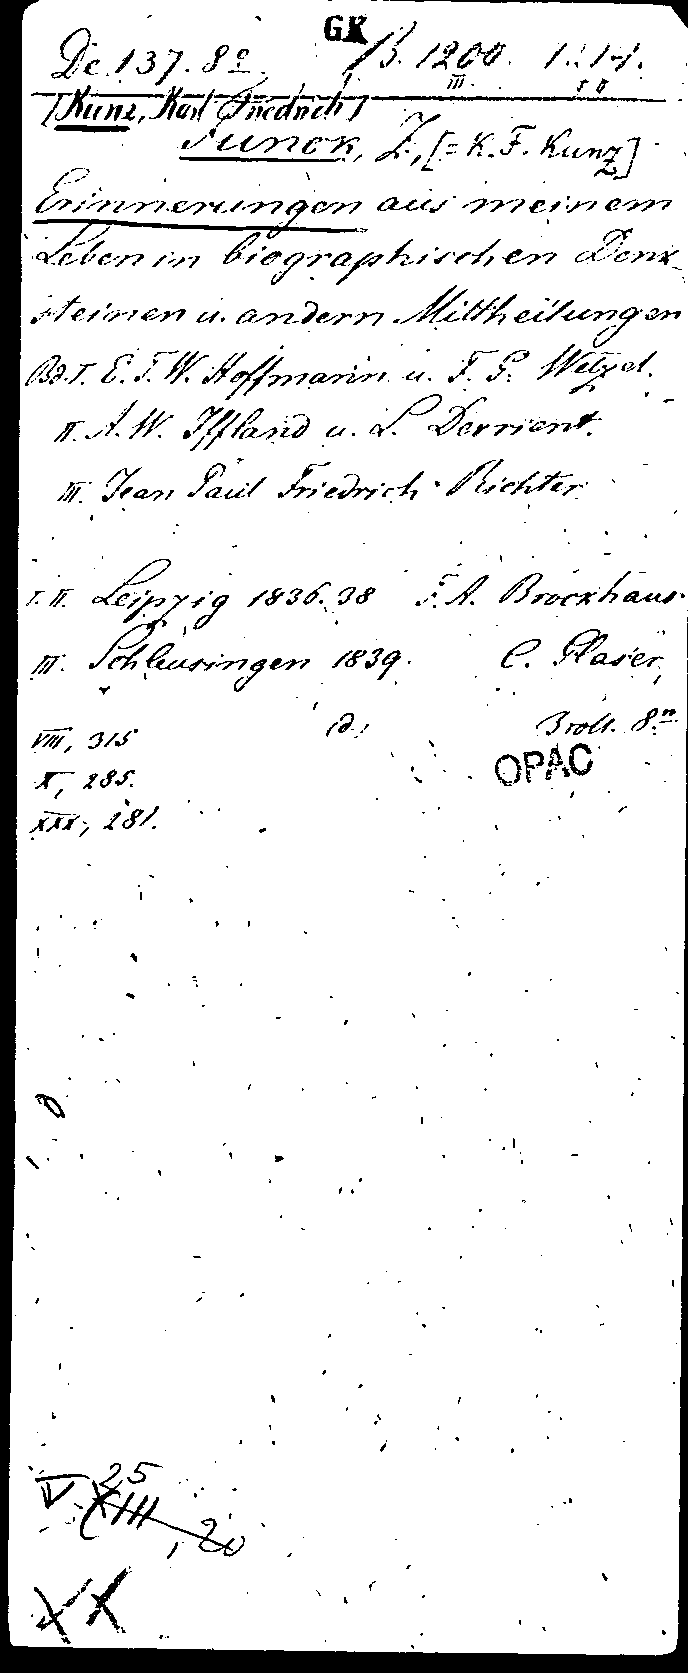 GK
De 137. 8º B. 1200. 1.214.
III. I II
[Kunz, Karl Friedrich]
Funck, Z., [= K. F. Kunz]
Erinnerungen aus meinem
Leben in biographischen Denk-
steinen u. andern Mittheilungen
Bd. I. E. T. W. Hoffmann u. F. G. Wetzel.
II. A. W. Iffland u. L. Devrient.
III. Jean Paul Friedrich Richter
I. II. Leipzig 1836. 38 F. A. Brockhaus
III. Schleusingen 1839. C. Glaser
VIII, 315 (d.) 3 voll. 8º
X, 285.
XXX, 281.
OPAC
25
XIII, 20